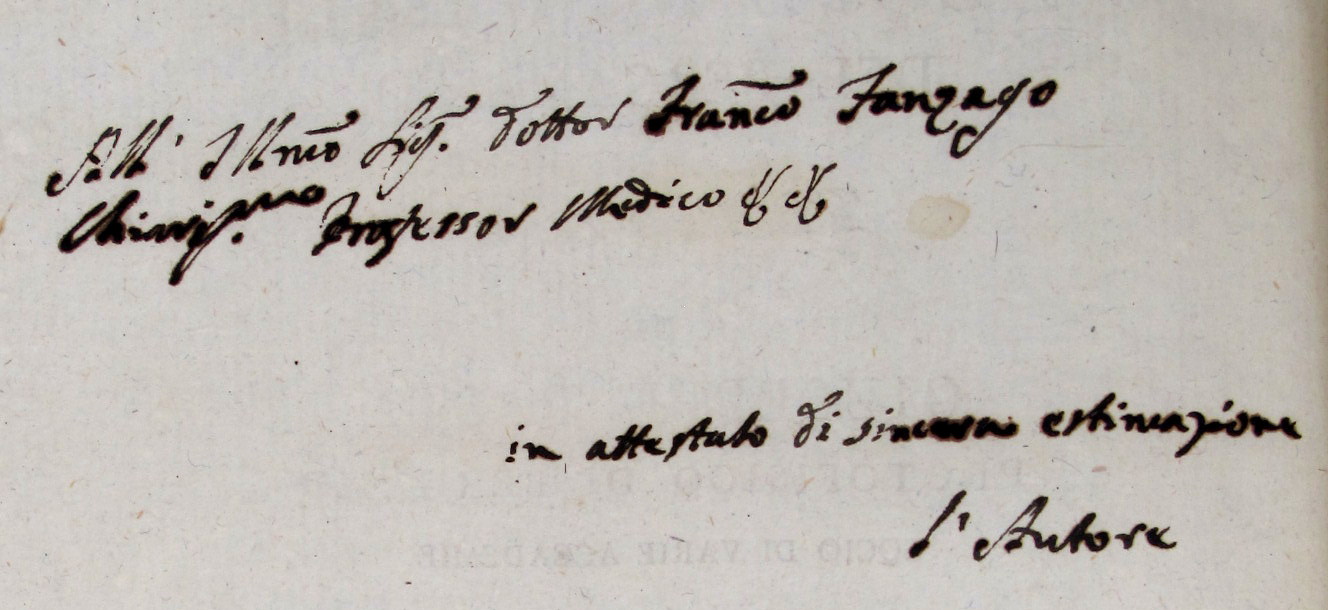 All' Illmo Sig. dottor Franco Fanzago
Chiariss.mo Professor Medico & &
in attestato di sincera estimazione
l' Autore